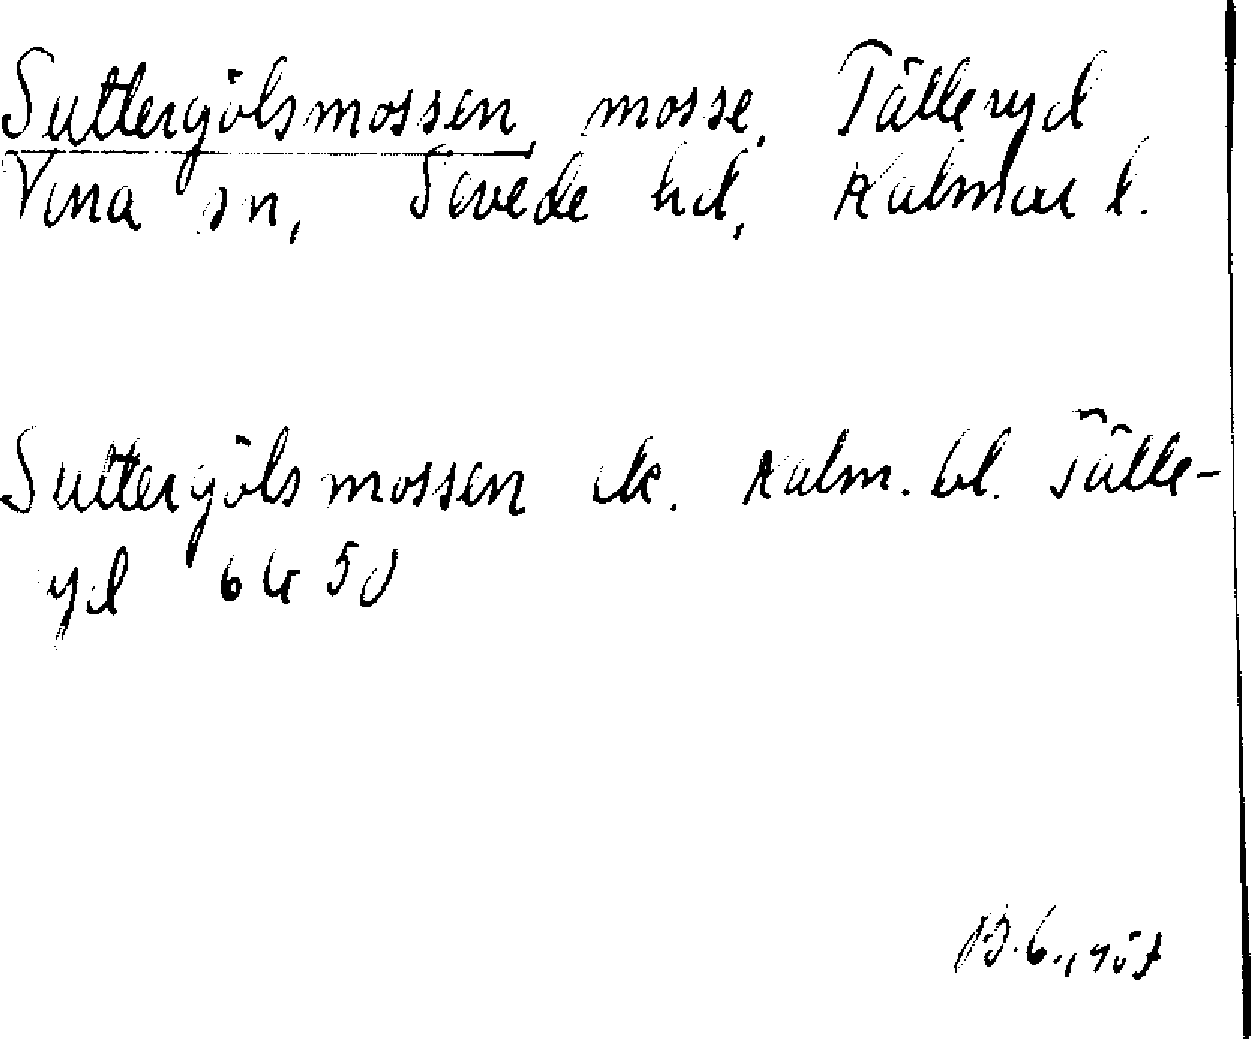 Suttergölsmossen, mosse, Tälleryd
Vena sn, Sevede hd, Kalmar l.
Suttergölsmossen ek. Kalm. bl. Tälle-
yd 6G 5d